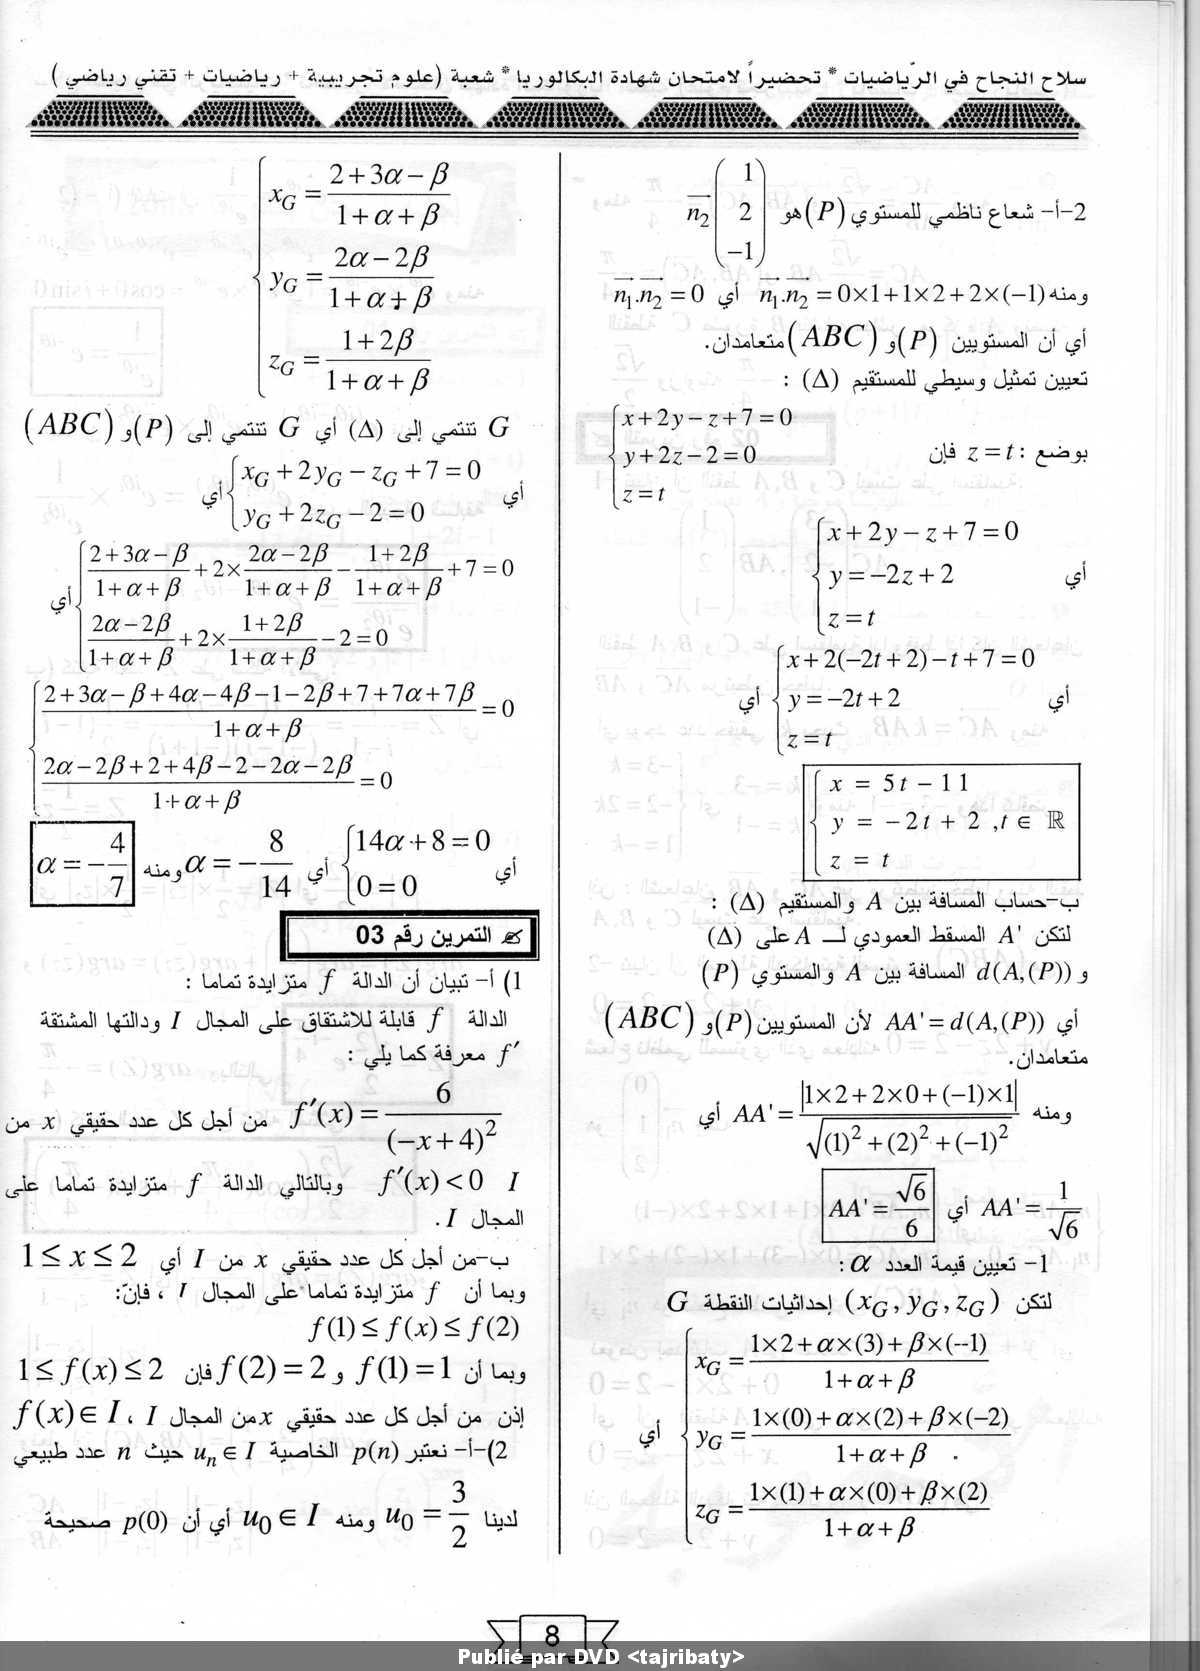 سلاح النجاح في الرّياضيات * تحضيراً لامتحان شهادة البكالوريا * شعبة (علوم تجريبية + رياضيات + تقني رياضي)
2-أ- شعاع ناظمي للمستوي (P) هو n₂ (1 2 −1)
ومنه n₁.n₂ = 0×1+1×2+2×(−1) أي n₁.n₂ = 0
أي أن المستويين (P) و (ABC) متعامدان.
تعيين تمثيل وسيطي للمستقيم (Δ) :
بوضع : z = t فإن
x + 2y − z + 7 = 0
y + 2z − 2 = 0
z = t
أي
x + 2y − z + 7 = 0
y = −2z + 2
z = t
أي
x + 2(−2t + 2) − t + 7 = 0
y = −2t + 2
z = t
أي
x = 5t − 11
y = −2t + 2 , t ∈ ℝ
z = t
ب-حساب المسافة بين A والمستقيم (Δ) :
لتكن A' المسقط العمودي لـ A على (Δ)
و d(A,(P)) المسافة بين A والمستوي (P)
أي AA' = d(A,(P)) لأن المستويين (P) و (ABC)
متعامدان.
ومنه AA' = |1×2+2×0+(−1)×1| / √((1)²+(2)²+(−1)²) أي
AA' = 1/√6 أي AA' = √6/6
1- تعيين قيمة العدد α :
لتكن (x_G , y_G , z_G) إحداثيات النقطة G
x_G = (1×2+α×(3)+β×(--1)) / (1+α+β)
y_G = (1×(0)+α×(2)+β×(−2)) / (1+α+β)
z_G = (1×(1)+α×(0)+β×(2)) / (1+α+β)
أي
x_G = (2+3α−β) / (1+α+β)
y_G = (2α−2β) / (1+α+β)
z_G = (1+2β) / (1+α+β)
G تنتمي إلى (Δ) أي G تنتمي إلى (P) و (ABC)
أي
x_G + 2y_G − z_G + 7 = 0
y_G + 2z_G − 2 = 0
أي
(2+3α−β)/(1+α+β) + 2× (2α−2β)/(1+α+β) − (1+2β)/(1+α+β) + 7 = 0
(2α−2β)/(1+α+β) + 2× (1+2β)/(1+α+β) − 2 = 0
أي
(2+3α−β+4α−4β−1−2β+7+7α+7β)/(1+α+β) = 0
(2α−2β+2+4β−2−2α−2β)/(1+α+β) = 0
أي
14α + 8 = 0
0 = 0
أي α = −8/14 ومنه α = −4/7
✍ التمرين رقم 03
1) أ- تبيان أن الدالة f متزايدة تماما :
الدالة f قابلة للاشتقاق على المجال I ودالتها المشتقة
f' معرفة كما يلي :
f'(x) = 6/(−x+4)² من أجل كل عدد حقيقي x من
I f'(x) < 0 وبالتالي الدالة f متزايدة تماما على
المجال I .
ب-من أجل كل عدد حقيقي x من I أي 1 ≤ x ≤ 2
وبما أن f متزايدة تماما على المجال I ، فإنّ:
f(1) ≤ f(x) ≤ f(2)
وبما أن f(1) = 1 و f(2) = 2 فإن 1 ≤ f(x) ≤ 2
إذن من أجل كل عدد حقيقي x من المجال I ، f(x) ∈ I
2)-أ- نعتبر p(n) الخاصية uₙ ∈ I حيث n عدد طبيعي
لدينا u₀ = 3/2 ومنه u₀ ∈ I أي أن p(0) صحيحة
8
Publié par DVD <tajribaty>